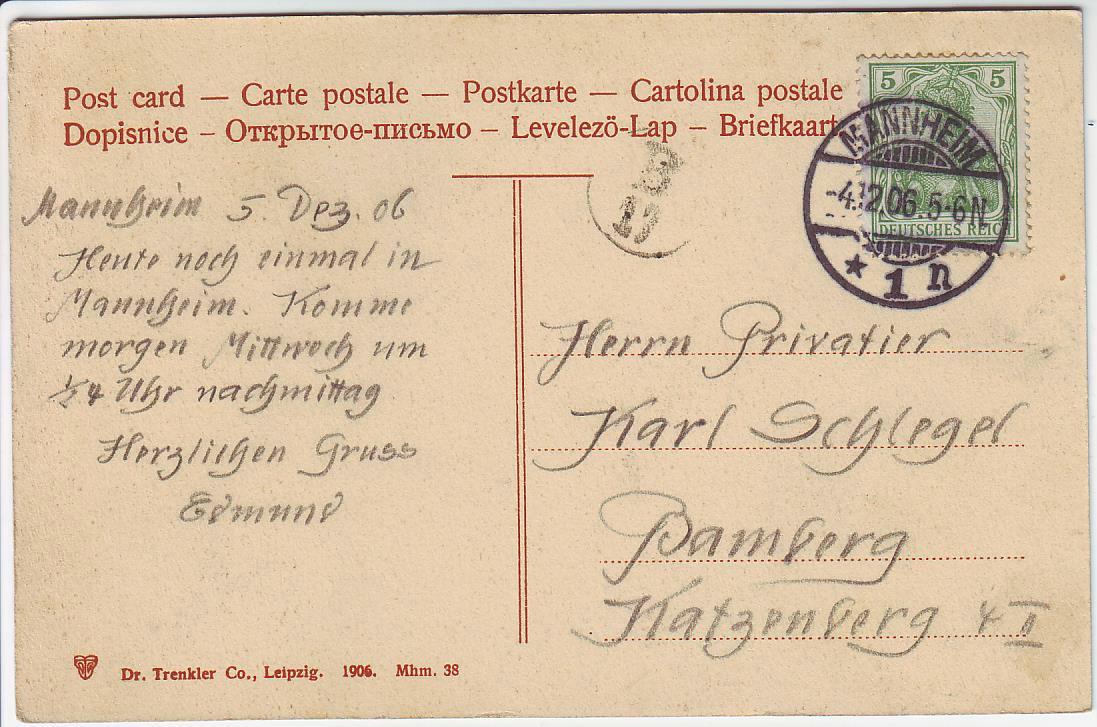 Post card — Carte postale — Postkarte — Cartolina postale
Dopisnice – Открытое-письмо – Levelező-Lap – Briefkaart
5 5
DEUTSCHES REICH
MANNHEIM
-4.12.06.5-6N
* 1 n
Mannheim 5. Dez. 06
Heute noch einmal in
Mannheim. Komme
morgen Mittwoch um
½4 Uhr nachmittag
Herzlichen Gruss
Edmund
Herrn Privatier
Karl Schlegel
Bamberg
Katzenberg 4 II
Dr. Trenkler Co., Leipzig. 1906. Mhm. 38